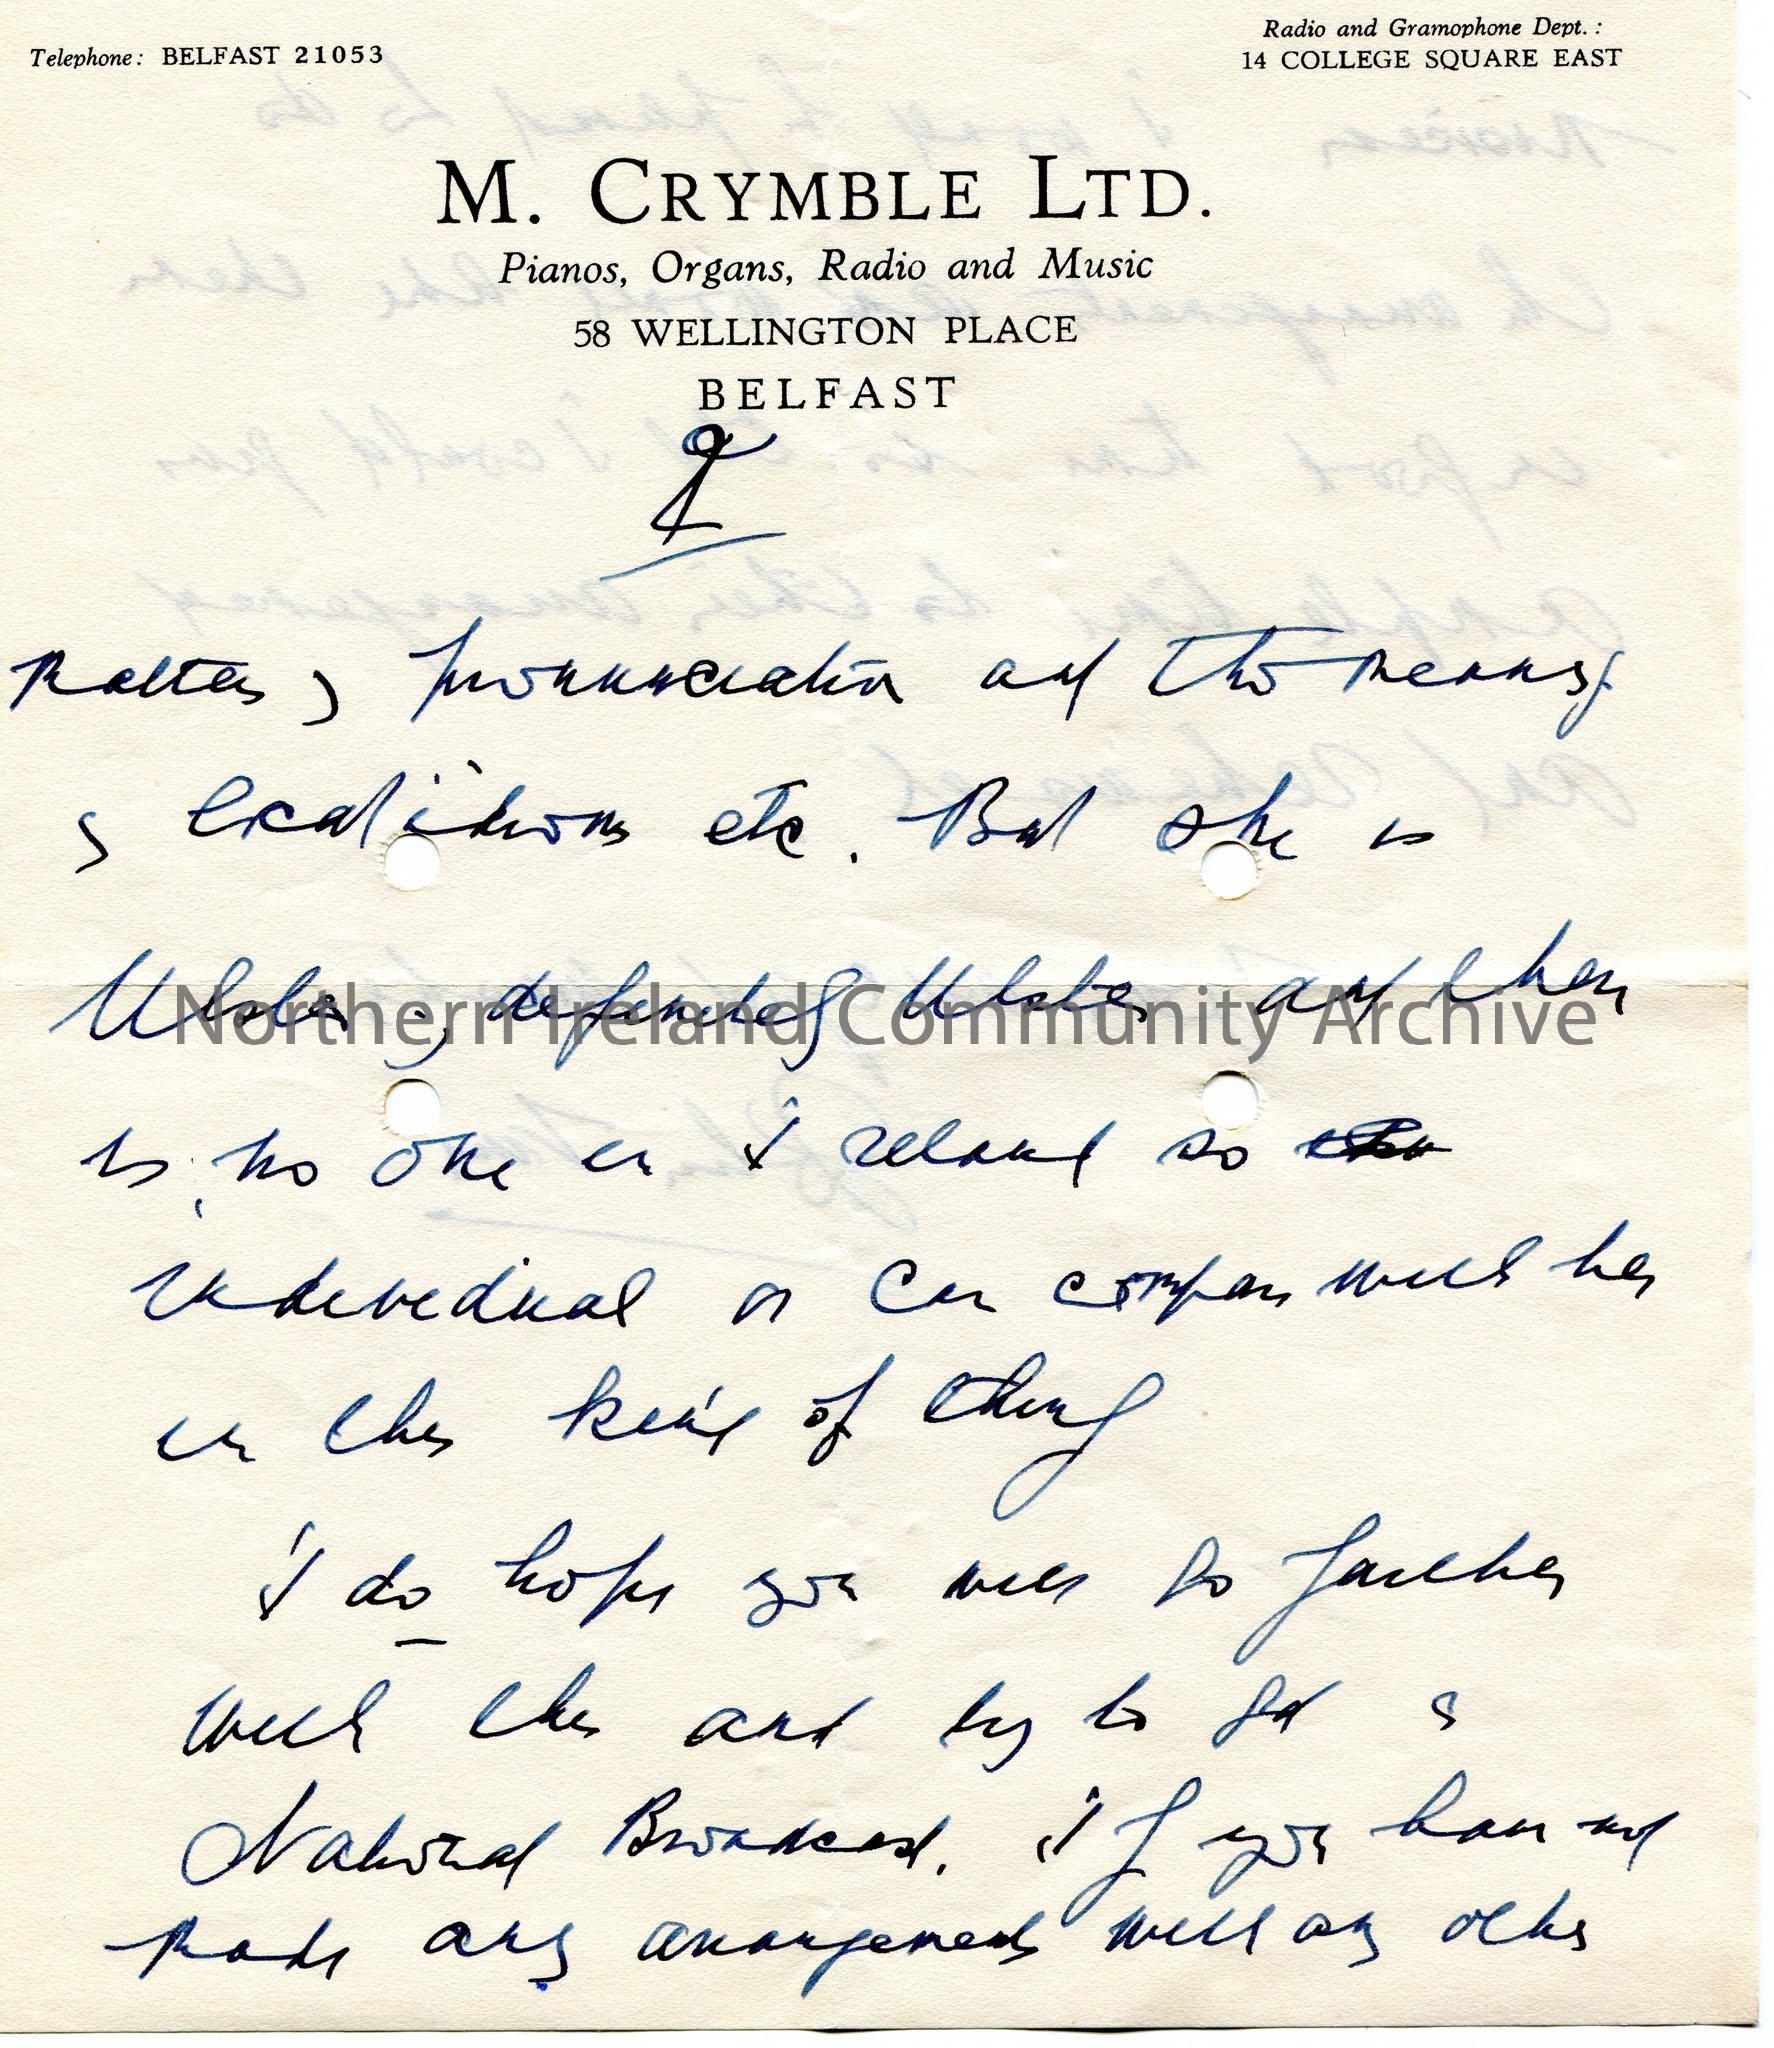 Telephone: BELFAST 21053
Radio and Gramophone Dept.:
14 COLLEGE SQUARE EAST
M. CRYMBLE LTD.
Pianos, Organs, Radio and Music
58 WELLINGTON PLACE
BELFAST
matters of pronunciation and the meaning
of local idioms etc. But she is
Ulster of Ulster and there
is no one in Ireland so
individual or can compare with her
in this kind of thing
I do hope you will go further
with this and try to get a
National Broadcast. If you have not
made any arrangements with any other
Northern Ireland Community Archive